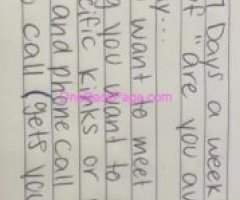 Days a week
"are you
want to meet
you want to
kinks or
and phone call
call (gets